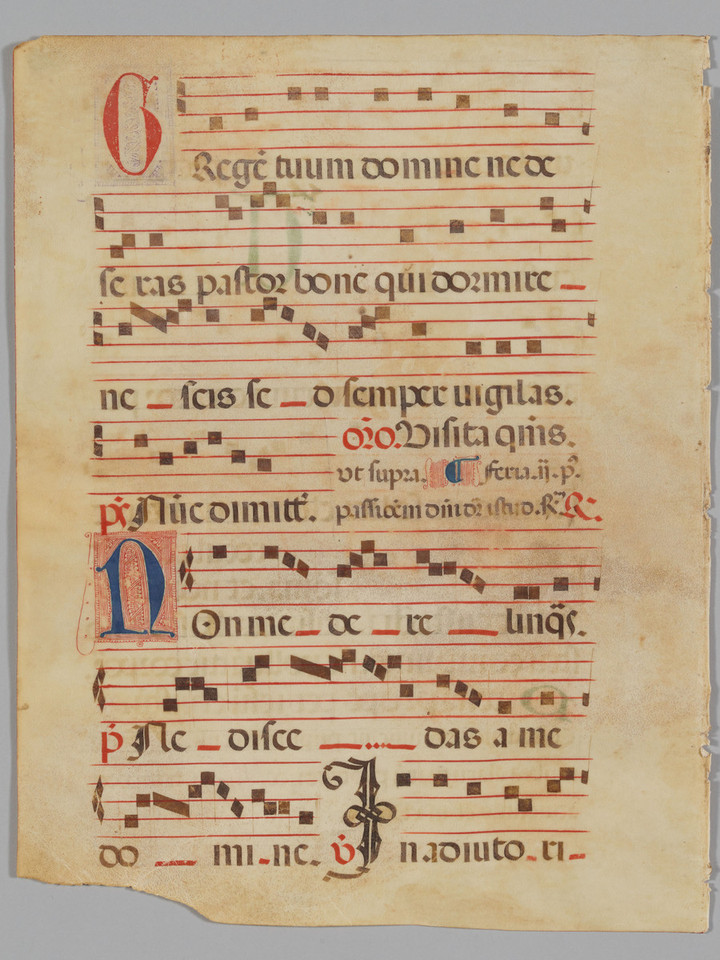 GRegē tuum domine ne de
se ras pastor bone qui dormire _
ne _ scis se _ d semper uigilas.
or̄o. Visita qm̄s.
vt supra. ¶ feria. ij. p̄.
p̄s Nūc dimitt̄.
NOn me _ de _ re _ linq̄s.
p̄ Ne _ disce _ das a me
do _ mi _ ne. v̄ Jn adiuto _ ri _